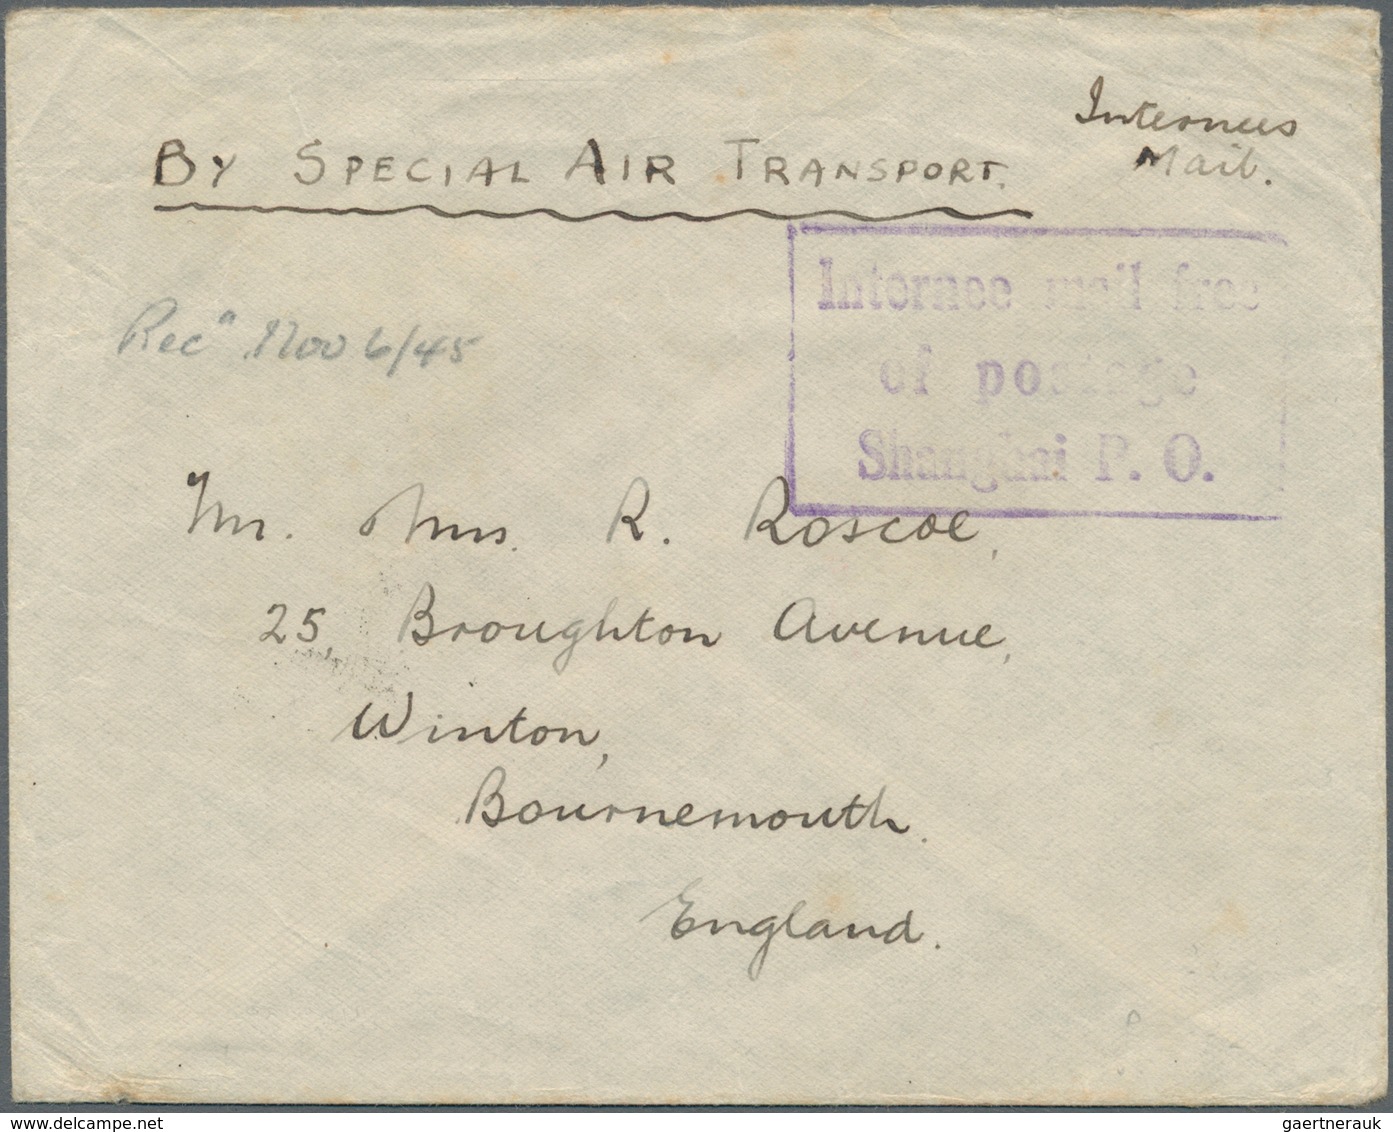 Internees
Mail.
BY SPECIAL AIR TRANSPORT.
Internee mail free
of postage
Shanghai P. O.
Rec'd Nov 6/45
Mr. & Mrs. R. Roscoe,
25 Broughton Avenue,
Winton,
Bournemouth.
England.
www.delcampe.net
gaertnerauk